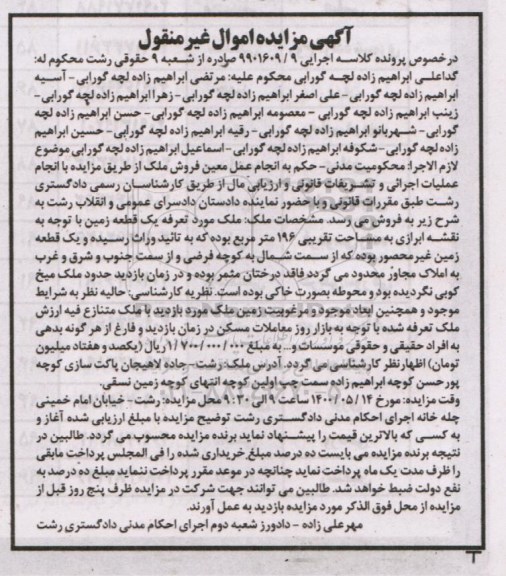 آگهی مزایده اموال غیر منقول
درخصوص پرونده کلاسه اجرایی ۹ / ۹۹۰۱۶۰۹ صادره از شعبه ۹ حقوقی رشت محکوم له:
گداعلی ابراهیم زاده لچه گورابی محکوم علیه: مرتضی ابراهیم زاده لچه گورابی - آسیه
ابراهیم زاده لچه گورابی - علی اصغر ابراهیم زاده لچه گورابی - زهرا ابراهیم زاده لچه گورابی -
زینب ابراهیم زاده لچه گورابی - معصومه ابراهیم زاده لچه گورابی - حسن ابراهیم زاده لچه
گورابی - شهربانو ابراهیم زاده لچه گورابی - رقیه ابراهیم زاده لچه گورابی - حسین ابراهیم
زاده لچه گورابی - شکوفه ابراهیم زاده لچه گورابی - اسماعیل ابراهیم زاده لچه گورابی موضوع
لازم الاجرا: محکومیت مدنی - حکم به انجام عمل معین فروش ملک از طریق مزایده با انجام
عملیات اجرائی و تشریفات قانونی و ارزیابی مال از طریق کارشناسان رسمی دادگستری
رشت طبق مقررات قانونی و با حضور نماینده دادستان دادسرای عمومی و انقلاب رشت به
شرح زیر به فروش می رسد. مشخصات ملک: ملک مورد تعرفه یک قطعه زمین با توجه به
نقشه ابرازی به مساحت تقریبی ۱۹۶ متر مربع بوده که به تائید وراث رسیده و یک قطعه
زمین غیر محصور بوده که از سمت شمال به کوچه فرضی و از سمت جنوب و شرق و غرب
به املاک مجاور محدود می گردد فاقد درختان مثمر بوده و در زمان بازدید حدود ملک میخ
کوبی نگردیده بود و محوطه بصورت خاکی بوده است. نظریه کارشناسی: حالیه نظر به شرایط
موجود و همچنین ابعاد موجود و مرغوبیت زمین ملک مورد بازدید با ملک متنازع فیه ارزش
ملک تعرفه شده با توجه به بازار روز معاملات مسکن در زمان بازدید و فارغ از هر گونه بدهی
به افراد حقیقی و حقوقی موسسات و... به مبلغ ۱/۷۰۰/۰۰۰/۰۰۰ ریال (یکصد و هفتاد میلیون
تومان) اظهار نظر کارشناسی می گردد. آدرس ملک: رشت - جاده لاهیجان پاکت سازی کوچه
پورحسن کوچه ابراهیم زاده سمت چپ اولین کوچه انتهای کوچه زمین نسقی.
وقت مزایده: مورخ ۱۴ / ۰۵ / ۱۴۰۰ ساعت ۹ الی ۹:۳۰ محل مزایده: رشت - خیابان امام خمینی
چله خانه اجرای احکام مدنی دادگستری رشت توضیح مزایده با مبلغ ارزیابی شده آغاز و
به کسی که بالاترین قیمت را پیشنهاد نماید برنده مزایده محسوب می گردد. طالبین در
نتیجه برنده مزایده می بایست ده درصد مبلغ خریداری شده را فی المجلس پرداخت مابقی
را ظرف مدت یک ماه پرداخت نماید چنانچه در موعد مقرر پرداخت ننماید مبلغ ده درصد به
نفع دولت ضبط خواهد شد. طالبین می توانند جهت شرکت در مزایده ظرف پنج روز قبل از
مزایده از محل فوق الذکر مورد مزایده بازدید به عمل آورند.
مهر علی زاده - دادورز شعبه دوم اجرای احکام مدنی دادگستری رشت